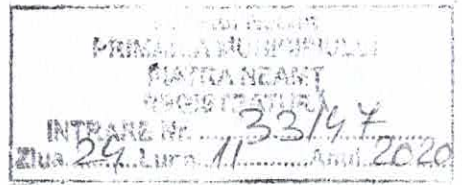 PRIMĂRIA MUNICIPIULUI
PIATRA NEAMŢ
REGISTRATURĂ
INTRARE Nr. ....33147....
Ziua 24 Luna 11 Anul 2020